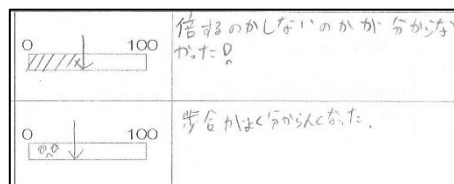 0 100
倍するのかしないのかが分からな
かった!
0 100
歩合がよく分からんくなった.